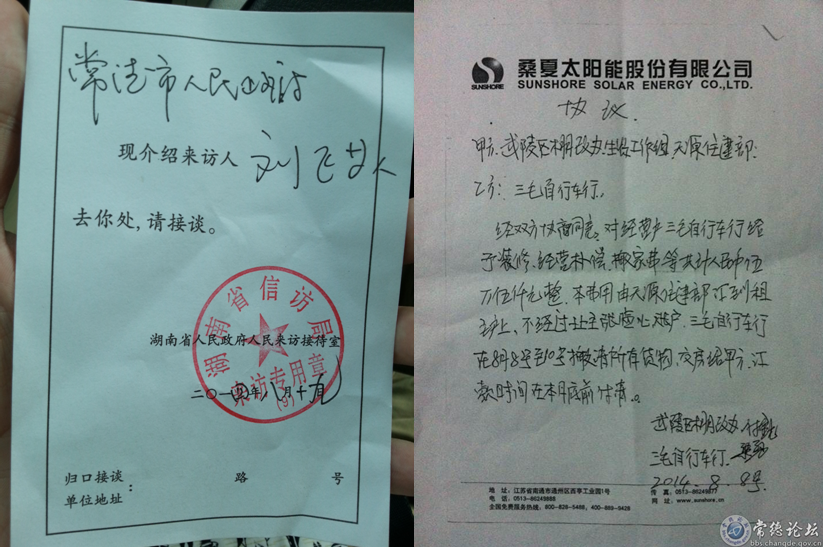 常德市人民政府
现介绍来访人
去你处,请接谈。
湖南省信访局
来访专用章
(9)
湖南省人民政府人民来访接待室
二〇一四年八月十九
归口接谈: 路 号
单位地址
SUNSHORE
桑夏太阳能股份有限公司
SUNSHORE SOLAR ENERGY CO.,LTD.
协议
甲方:武陵区棚改办 工作组 天源住建部:
乙方:三毛自行车行.
经双方协商同意,对经营户三毛自行车行给
于装修、经营补偿、搬家费等共计人民币伍
万伍仟元整.本费用由天源住建部 到租
不经过 户.三毛自行车行
在8月8号到10号搬清所有货物,交房给甲方.
款时间在本月底前付清。
武陵区棚改办
三毛自行车行.
2014.8.8号
地 址:江苏省南通市通州区商亭工业园1号
电 话:0513-86249888
传 真:0513-86249877
网 址:www.sunshore.cn
全国免费服务热线:800-828-5488, 400-889-0428
常德论坛
bbs.changde.gov.cn